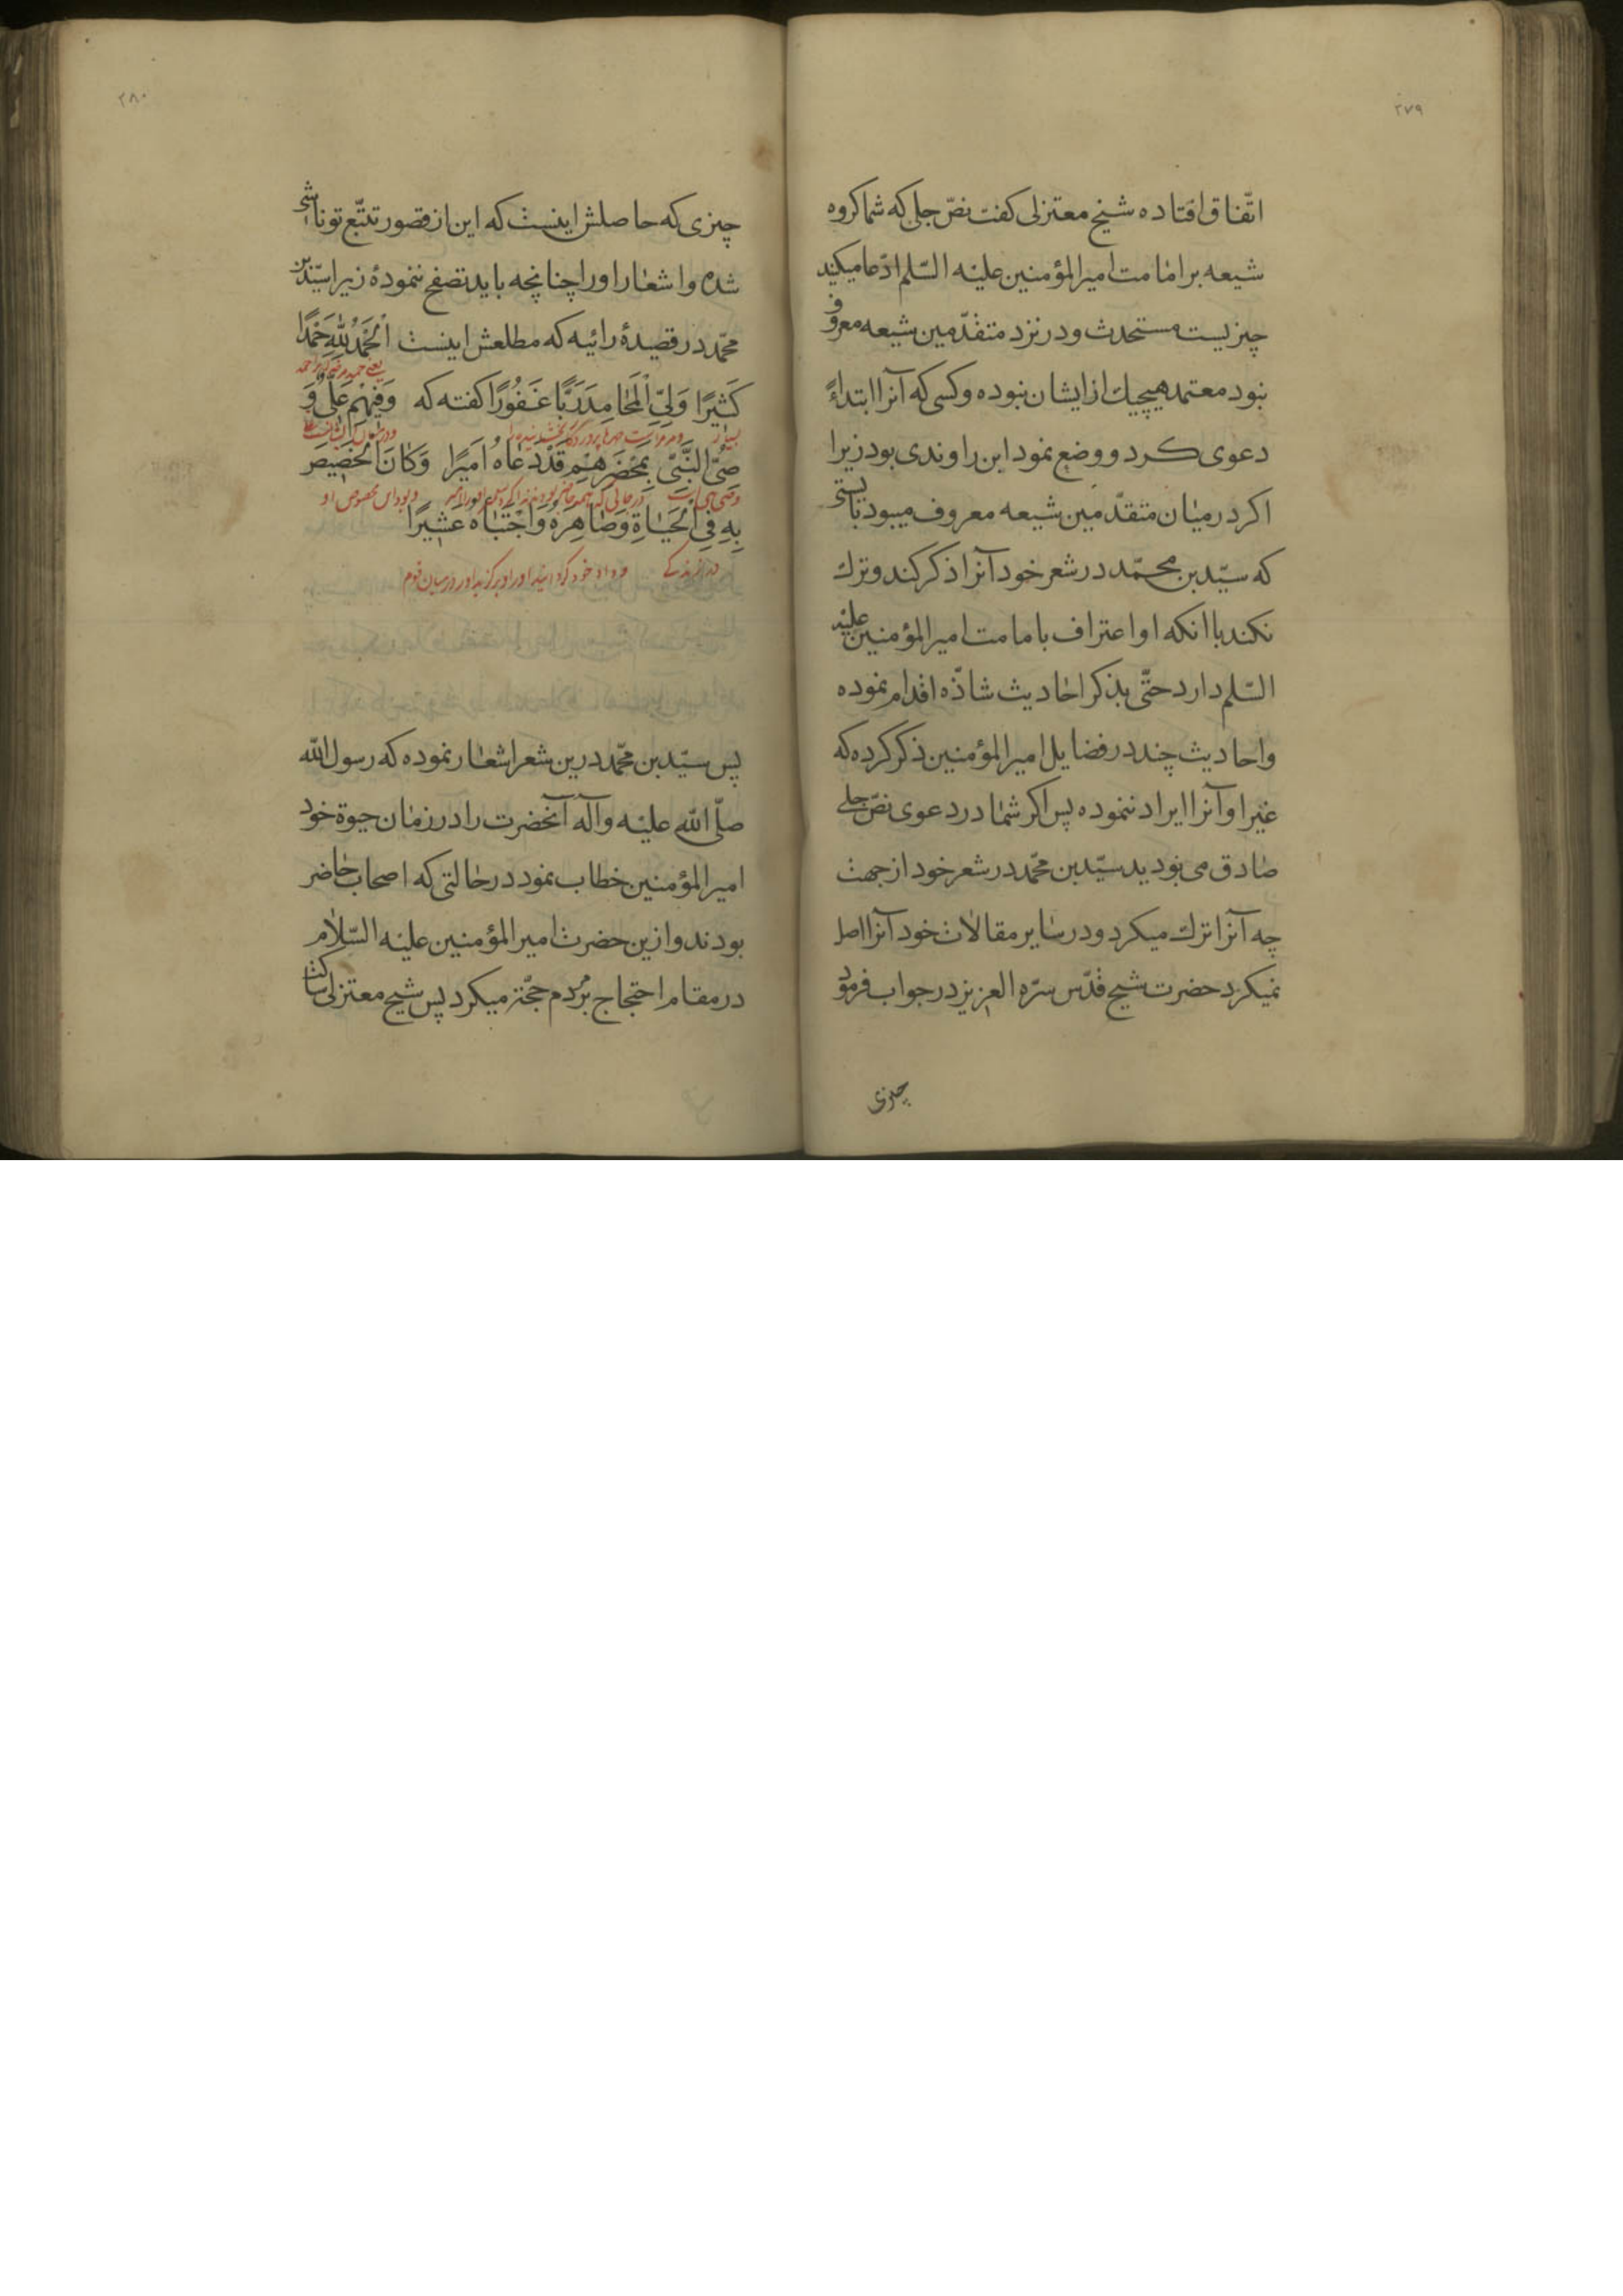 ۲۷۹
اتّفاق افتاده شیخ معتزلی کفت نصّ جلی که شما کروه
شیعه بر امامت امیر المؤمنین علیه السّلم ادّعا میکنید
چیزیست مستحدث و در نزد متقدّمین شیعه معروف
نبود معتمد هیچیك از ایشان نبوده و کسی که آنرا ابتداءً
دعوی کرد و وضع نمود ابن راوندی بود زیرا
اکر در میان متقدّمین شیعه معروف میبود بایستی
که سیّد بن محمّد در شعر خود آنرا ذکر کند و ترك
نکند با انکه او اعتراف بامامت امیر المؤمنین علیه
السّلم دارد حتّی بذکر احادیث شاذّه اقدام نموده
واحادیث چند در فضایل امیر المؤمنین ذکر کرده که
غیر او آنرا ایراد ننموده پس اکر شما در دعوی نصّ جلی
صادق می بودید سیّد بن محمّد در شعر خود از جهت
چه آنرا ترك میکرد و در سایر مقالات خود آنرا اصل
نمیکرد حضرت شیخ قدّس سرّه العزیز در جواب فرمود
چیزی
۲۸۰
چیزی که حاصلش اینست که این از قصور تتبّع تو ناشی
شده و اشعار او را چنانچه باید تصفح ننمودۀ زیرا سیّد بن
محمّد در قصیدۀ رائیه که مطلعش اینست اَلْحَمْدُ لِلّٰهِ حَمْدًا
یعنی حمد مر خدایرا حمد
کَثیرًا وَلِیِّ الْمَحامِدِ رَبًّا غَفُورًا کفته که وَفیهِمْ عَلِیٌّ وَ
بسیار پروردکار بخشنده
صِیُّ النَّبِیِّ بِمَحْضَرِهِمْ قَدْ دَعَاهُ اَمیرًا وَکانَ الْخَصیصَ
وصی نبی است در حالی که همه حاضر بودند امیر و بود او مخصوص او
بِهِ فِی الْحَیاةِ وَصَاهَرَهُ وَاجْتَبَاهُ عَشیرًا
در زندکی و داماد خود کردانید او را و برکزید او را در میان قوم
پس سیّد بن محمّد درین شعر اشعار نموده که رسول اللّه
صلّی اللّه علیه وآله آنحضرت را در زمان حیوة خود
امیر المؤمنین خطاب نمود در حالتی که اصحاب حاضر
بودند و ازین حضرت امیر المؤمنین علیه السّلام
در مقام احتجاج بر مردم حجّة میکرد پس شیخ معتزلی ساکت